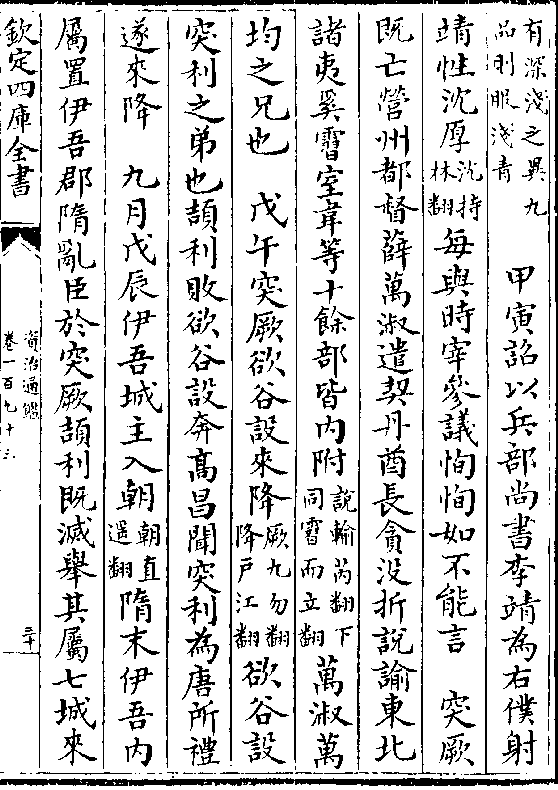 有深淺之異九
品則服淺青
甲寅詔以兵部尚書李靖為右僕射
靖性沈厚
沈持
林翻
每與時宰參議恂恂如不能言　突厥
既亡營州都督薛萬淑遣契丹酋長貪没折說諭東北
諸夷奚霫室韋等十餘部皆内附
說輸芮翻下
同霫而立翻
萬淑萬
均之兄也　戊午突厥欲谷設來降
厥九勿翻
降户江翻
欲谷設
突利之弟也頡利敗欲谷設奔髙昌聞突利為唐所禮
遂來降　九月戊辰伊吾城主入朝
朝直
遥翻
隋末伊吾内
屬置伊吾郡隋亂臣於突厥頡利既滅舉其屬七城來
欽定四庫全書
資治通鑑
卷一百九十三
三十